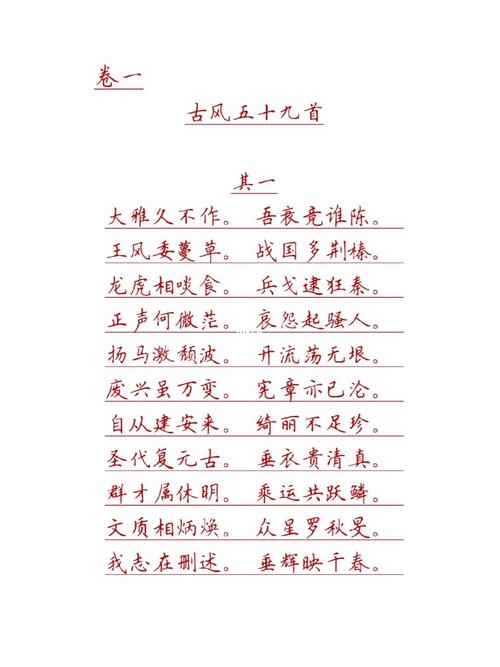 卷一
古风五十九首
其一
大雅久不作。 吾衰竞谁陈。
王风委蔓草。 战国多荆榛。
龙虎相啖食。 兵戈逮狂秦。
正声何微茫。 哀怨起骚人。
扬马激颓波。 开流荡无垠。
废兴虽万变。 宪章亦已沦。
自从建安来。 绮丽不足珍。
圣代复元古。 垂衣贵清真。
群才属休明。 乘运共跃鳞。
文质相炳焕。 众星罗秋旻。
我志在删述。 垂辉映千春。